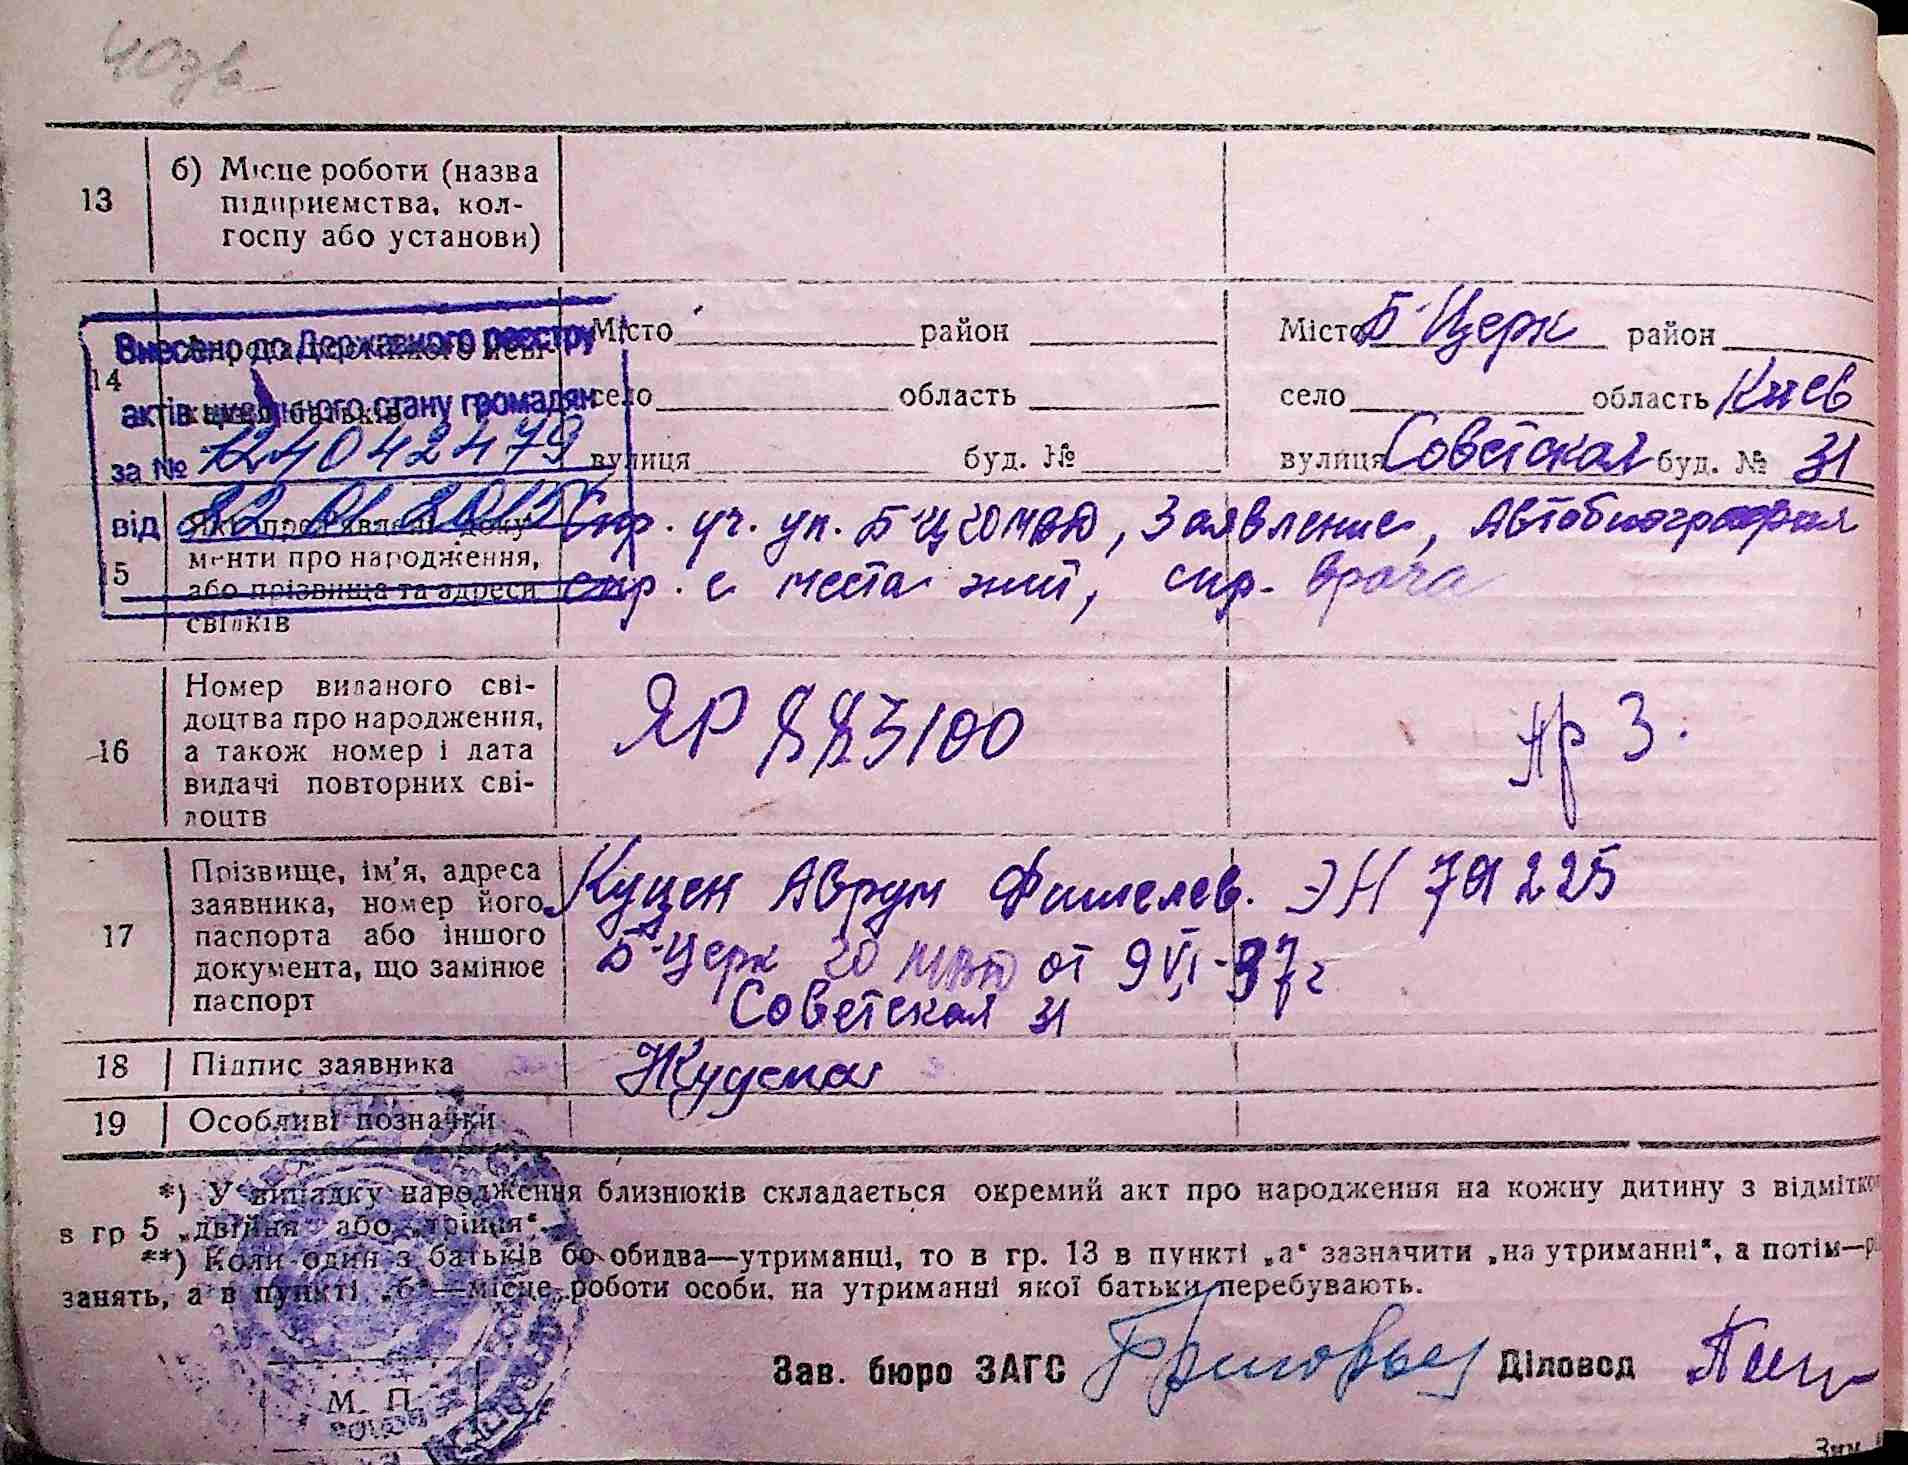 13
б) Місце роботи (назва
підприємства, кол-
госпу або установи)
Внесено до Державного реєстру
актів цивільного стану громадян
за № 124042479
від 22 01 2015
14
батьків
Місто район
село область
вулиця буд. №
Місто Б Церк район
село область Киев
вулиця Советская буд. № 31
15
менти про народження,
або прізвища та адреси
свідків
Спр. уч. уп. Заявление, Автобиография
спр. с места жит, спр. врача
16
Номер виданого сві-
доцтва про народження,
а також номер і дата
видачі повторних сві-
доцтв
ЯР 883100
Ар 3.
17
Прізвище, ім'я, адреса
заявника, номер його
паспорта або іншого
документа, що замінює
паспорт
Куцен Аврум Фишелев. ЭН 791225
Б-Церк 20 от 9 VI-37г
Советская 31
18
Підпис заявника
19
Особливі позначки
*) У випадку народження близнюків складається окремий акт про народження на кожну дитину з
в гр 5 „двійня“ або „трійця“.
**) Коли один з батьків бо обидва—утриманці, то в гр. 13 в пункті „а“ зазначити „на утриманні“, а потім—
занять, а в пункті „б“—місце роботи особи, на утриманні якої батьки перебувають.
Зав. бюро ЗАГС Діловод
М. П.